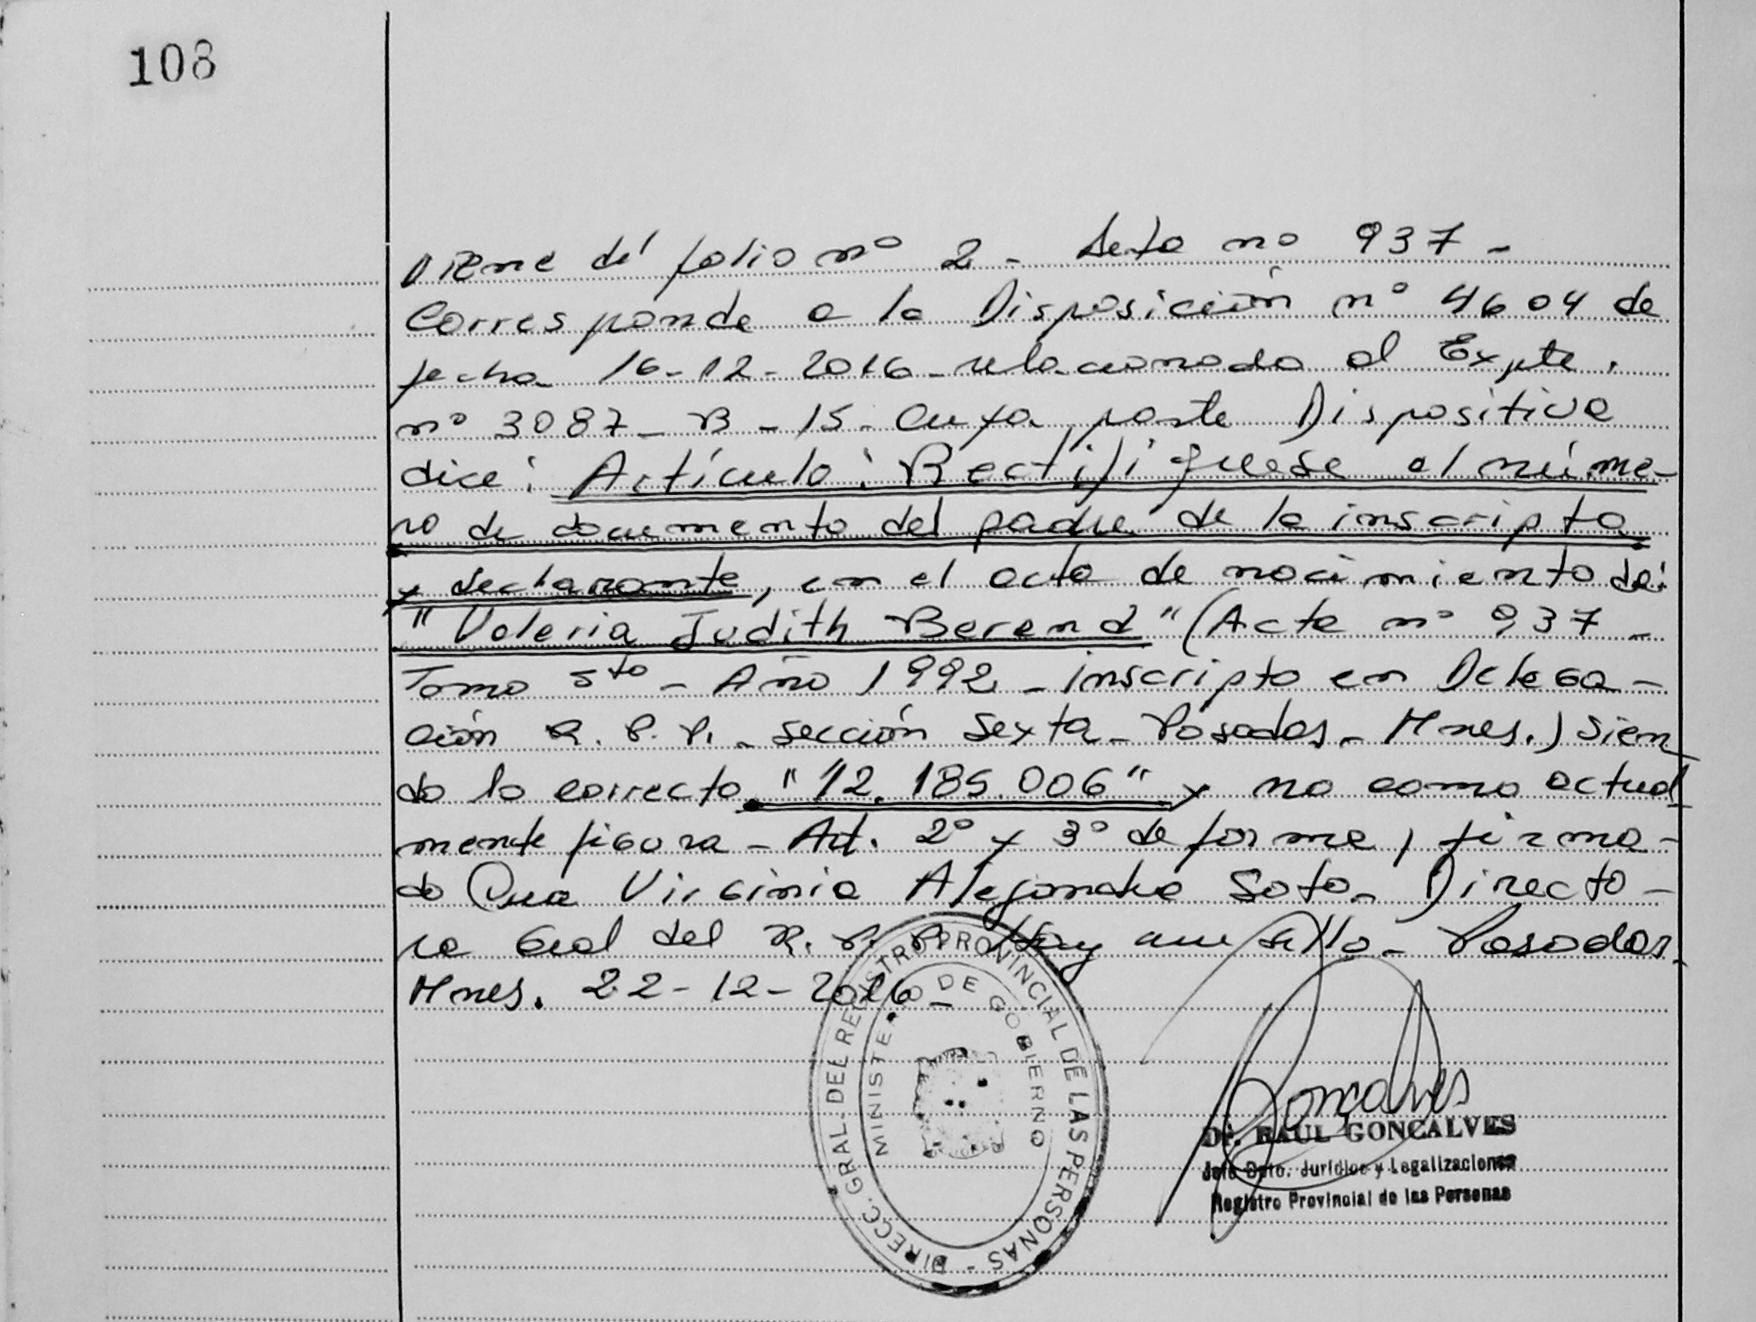 108
Viene del folio nº 2 - Acta nº 937 -
Corresponde a la Disposición nº 4604 de
fecha 16-12-2016 - relacionado al Expte.
nº 3087 - B - 15 - cuya parte Dispositiva
dice: Artículo: Rectifíquese el núme-
ro de documento del padre de la inscripta
y declarante, en el acta de nacimiento de:
"Valeria Judith Berend" (Acta nº 937 -
Tomo 5to - Año 1992 - inscripta en Delega-
ción R. P. P. - Sección Sexta - Posadas - Mnes.) sien
do lo correcto "12.185.006" y no como actual
mente figura - Art. 2º y 3º de forma, firma-
do Virginia Alejandra Soto - Directo-
ra Gral del R. P. P. Hay un sello - Posadas
Mnes. 22-12-2016 -
DIRECC. GRAL. DEL REGISTRO PROVINCIAL DE LAS PERSONAS -
MINISTERIO DE GOBIERNO
Goncalves
Dr. RAUL GONCALVES
Jefe Dpto. Jurídico y Legalizaciones
Registro Provincial de las Personas